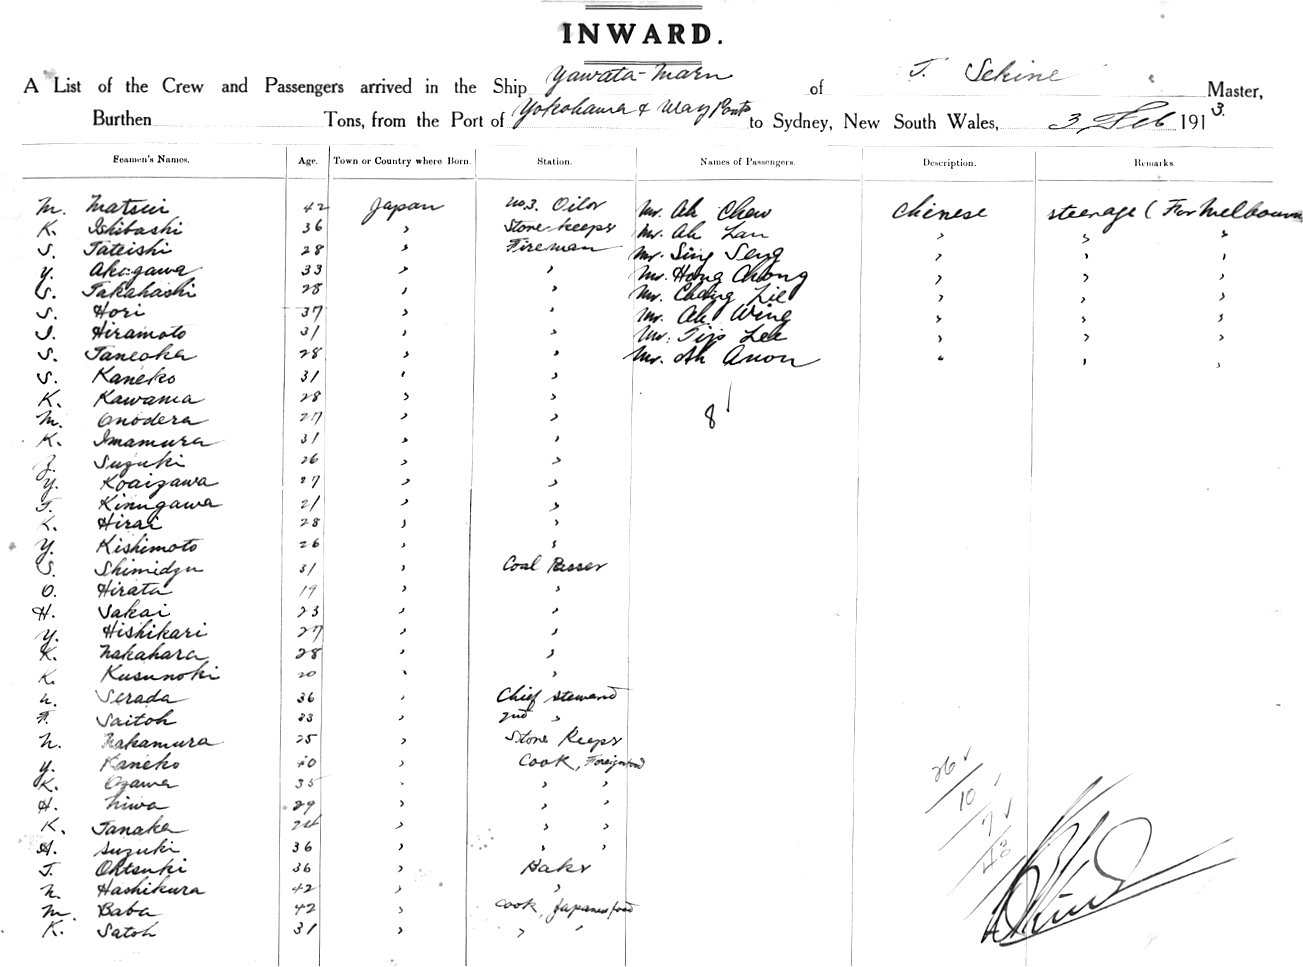 INWARD.
A List of the Crew and Passengers arrived in the Ship Yawata-Maru of T. Sekine Master,
Burthen Tons, from the Port of Yokohama & Way Ports to Sydney, New South Wales, 3 Feb 1913.
Seamen's Names. Age. Town or Country where Born. Station. Names of Passengers. Description. Remarks.
M. Matsui 42 Japan No.3. Oiler Mr. Ah Chew Chinese steerage (For Melbourne
K. Ishibashi 36 " Store-keeper Mr. Ah Lan " " "
S. Tateishi 28 " Fireman Mr. Sing Seng " " "
Y. Akagawa 33 " " Mr. Hong Chong " " "
S. Takahashi 28 " " Mr. Chong Lie " " "
S. Hori 37 " " Mr. Ah Wing " " "
I. Hiramoto 31 " " Mr. Tip Lee " " "
S. Taneoka 28 " " Mr. Ah Anon " " "
S. Kaneko 31 " "
K. Kawama 28 " "
M. Onodera 27 " " 8
K. Imamura 31 " "
Z. Suzuki 26 " "
Y. Koaizawa 27 " "
T. Kinugawa 21 " "
K. Hirai 28 " "
Y. Kishimoto 26 " "
S. Shimidzu 31 " Coal Passer
O. Hirata 19 " "
H. Sakai 23 " "
Y. Hishikari 27 " "
K. Nakahara 28 " "
K. Kusunoki 20 " "
N. Serada 36 " Chief Steward
T. Saitoh 23 " 2nd "
N. Nakamura 25 " Store Keeper
Y. Kaneko 40 " Cook, Foreign food
K. Ozawa 35 " " "
H. Niwa 29 " " "
K. Tanaka 24 " " "
H. Suzuki 36 " " "
T. Ohtsuki 36 " Baker
N. Hashikura 42 " "
M. Baba 42 " Cook, Japanese food
K. Satoh 31 " " "
26
10
7